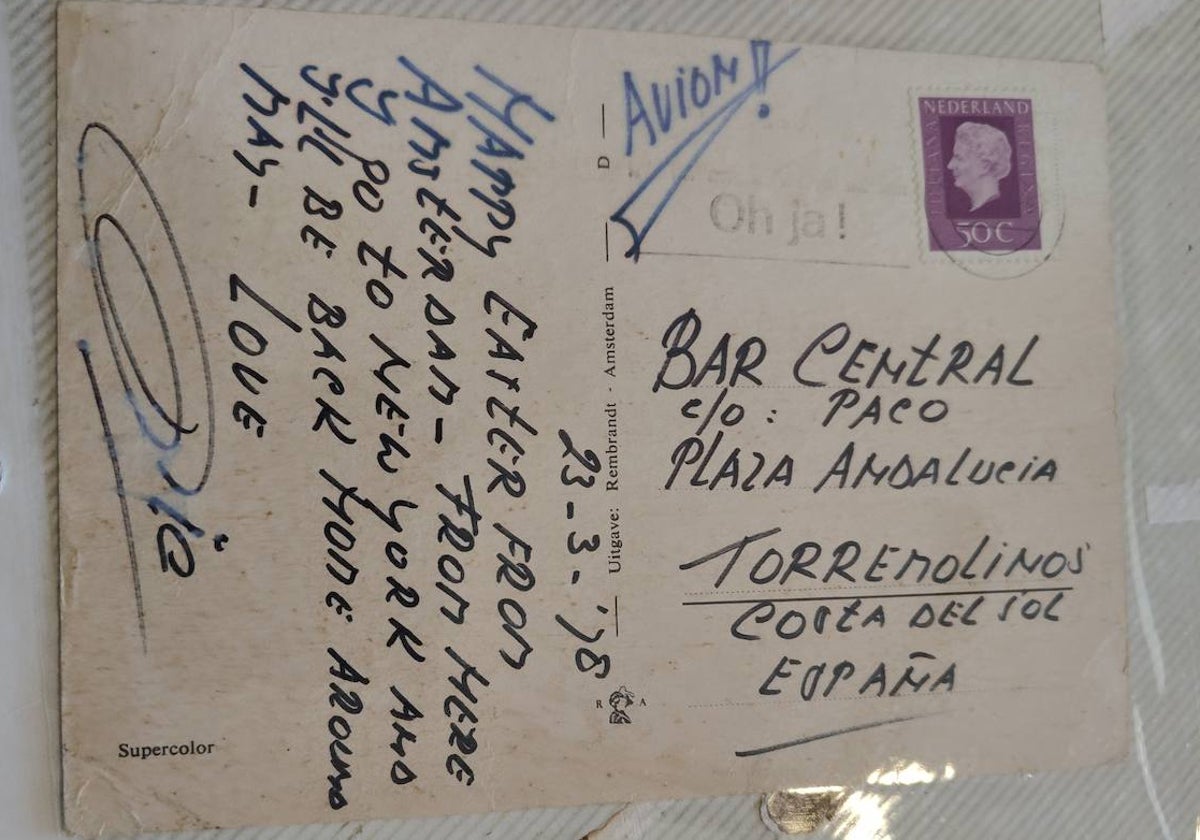 23-3-'78
HAPPY EASTER FROM
AMSTERDAM- FROM HERE
Y GO TO NEW YORK AND
Y'LL BE BACK HOME AROUND
MAY- LOVE
Supercolor
D
Uitgave: Rembrandt - Amsterdam
R A
AVION!!
Oh ja!
NEDERLAND
JULIANA REGINA
50 C
BAR CENTRAL
c/o: PACO
PLAZA ANDALUCIA
TORREMOLINOS
COSTA DEL SOL
ESPAÑA